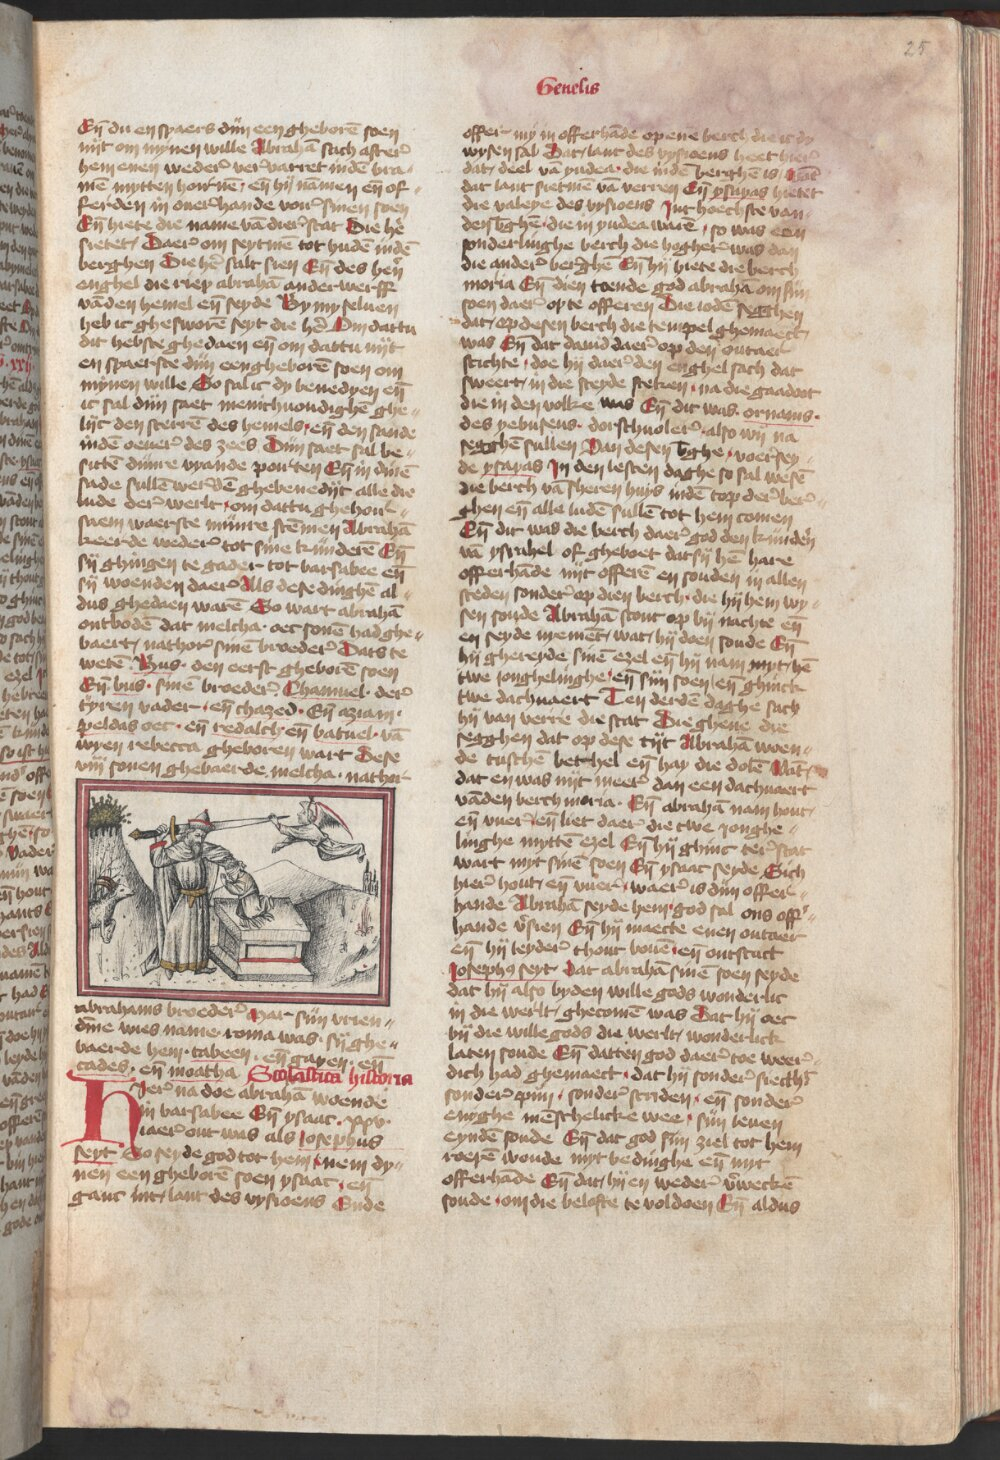 25
Genesis
Eñ du en spaers dijn een gheborē soen
nijt om mynen wille Abrahā sach after
hem enen weder verwarret indē bra-
mē mytten hornnē / eñ hij namen eñ of-
ferden in ouerhande voer sinen soen
Eñ hiete die name vā dier stat Die hē
sietet / Daer om seytmē tot hudē indē
berghen Die hē salt sien Eñ des hen
enghel die riep abrahā anderwerff
vādē hemel eñ seyde By my seluen
heb ic ghesworē seyt die hē Om dattu
dit hebste ghedaen eñ om dattu nijt
en spaerste dijn eengheborē soen om
mijnen wille So sal ic dy benedyen eñ
ic sal dijn saet menichuondighē ghe-
lijc den sterrē des hemels eñ den sande
indē oeuer des zees Dijn saet sal be-
sittē dijnre vyande poerten Eñ in dinē
sade sullē werdē ghebenedijt alle die
lude der werlt / om dattu ghehoir-
saem waerste mijnre stēmen Abrahā
keerde weder tot sine kijnderē Eñ
sij ghingen te gader tot barsabee eñ
sij woenden daer Als dese dinghē al-
dus ghedaen warē So wart abrahā
ontbodē dat melcha oec sonē had ghe-
baert / nathor sinē broeder Dats te
wetē Hus den eerst gheborē soen
Eñ bus sinē broeder Chamuel der
tyren vader / eñ chazed Eñ aziam
peldas oec eñ iedalch eñ batuel vā
wyen rebecca gheboren wart Dese
viij sonen ghebaerde melcha nathor
abrahams broeder Mar sijn vrien-
dīne wies name roma was sij ghe-
baerde hem tabeen eñ gapen eñ
tades eñ moatha Scolastica historia
Hier na doe abrahā woende
in barsabee Eñ ysaac xxv
iaer out was als Josephus
seyt So seyde god tot hem nem dy-
nen een gheborē soen ysaac / eñ
ganc int lant des vysioens Ende
offer my in offerhāde op enē berch die ic dy
wysen sal Dat lant des vysioens heet hier
dat deel vā yudea die indē berghē is Dat
dat lant sietmē vā verren Eñ ysayas hietet
die valeye des vysioens Int hoechste van
den bghē die in yudea warē / so was een
sonderlinghe berch die hogher was dan
die ander berghē Eñ hij hiete die berch
moria Eñ dien toende god abrahā om sijn
soen daer op te offeren Die iodē segghen
dat op desen berch die tempel ghemaect
was Eñ dat dauid daer op den outaer
stichte / doe hij daer den enghel sach dat
sweert in die sceyde steken na die gaadoot
die in den volke was Eñ dit was ornams
des yebuseus dorschvloer also wij na
segghē sullen Van desen bghe voersey-
de ysayas In den lesten daghe so sal wesē
die berch vā sheren huys indē top der ber-
ghen eñ alle ludē sullē tot hem comen
Eñ dit was die berch daer god den kinderē
vā ysrahel of gheboet dat sij hē hare
offerhāde nijt offerē en souden in allen
steden sonder op dien berch die hij hem wy-
sen soude Abrahā stont op bij nachte eñ
en seyde niemēt wat hij doen soude Eñ
hij ghereyde sinē ezel eñ hij nam myt hē
twe jonghelinghe eñ sijn soen eñ ghinck
twe dachuaert Ten derdē daghe sach
hij van verre die stat Die ghene die
segghen dat op dese tijt Abrahā woen-
de tuschē bethel eñ hay die dolē Wāt
dat en was nijt meer dan een dachuaert
vāden berch moria Eñ abrahā nam hout
eñ vuer eñ liet daer die twe jonghe-
linghe myttē ezel Eñ hij ghinc ter stat
wart myt sinē soen Eñ ysaac seyde Sich
hier hout eñ vuer / waer is dijn offer-
hande Abrahā seyde hem god sal ons off-
hande vsien Eñ hij maecte enen outaer
eñ hij leyder thout bouē eñ outstact
Joseph9 seyt Dat abrahā sinē soen seyde
dat hij also byden wille gods wonderlic
in die werlt ghecomē was Dat hij oec
bij die wille gods die werlt wonderlick
laten soude Eñ datten god daer toe weer-
dich had ghemaect dat hij sonder siecth
sonder pijn sonder striden eñ sonder
enyghe mēschelicke wee / sijn leuen
eyndē soude Eñ dat god sijn ziel tot hem
roepē woude myt bedinghe eñ myt
offerhāde Eñ dat hij en weder vweckē
soude / om die belofte te voldoen Eñ aldus